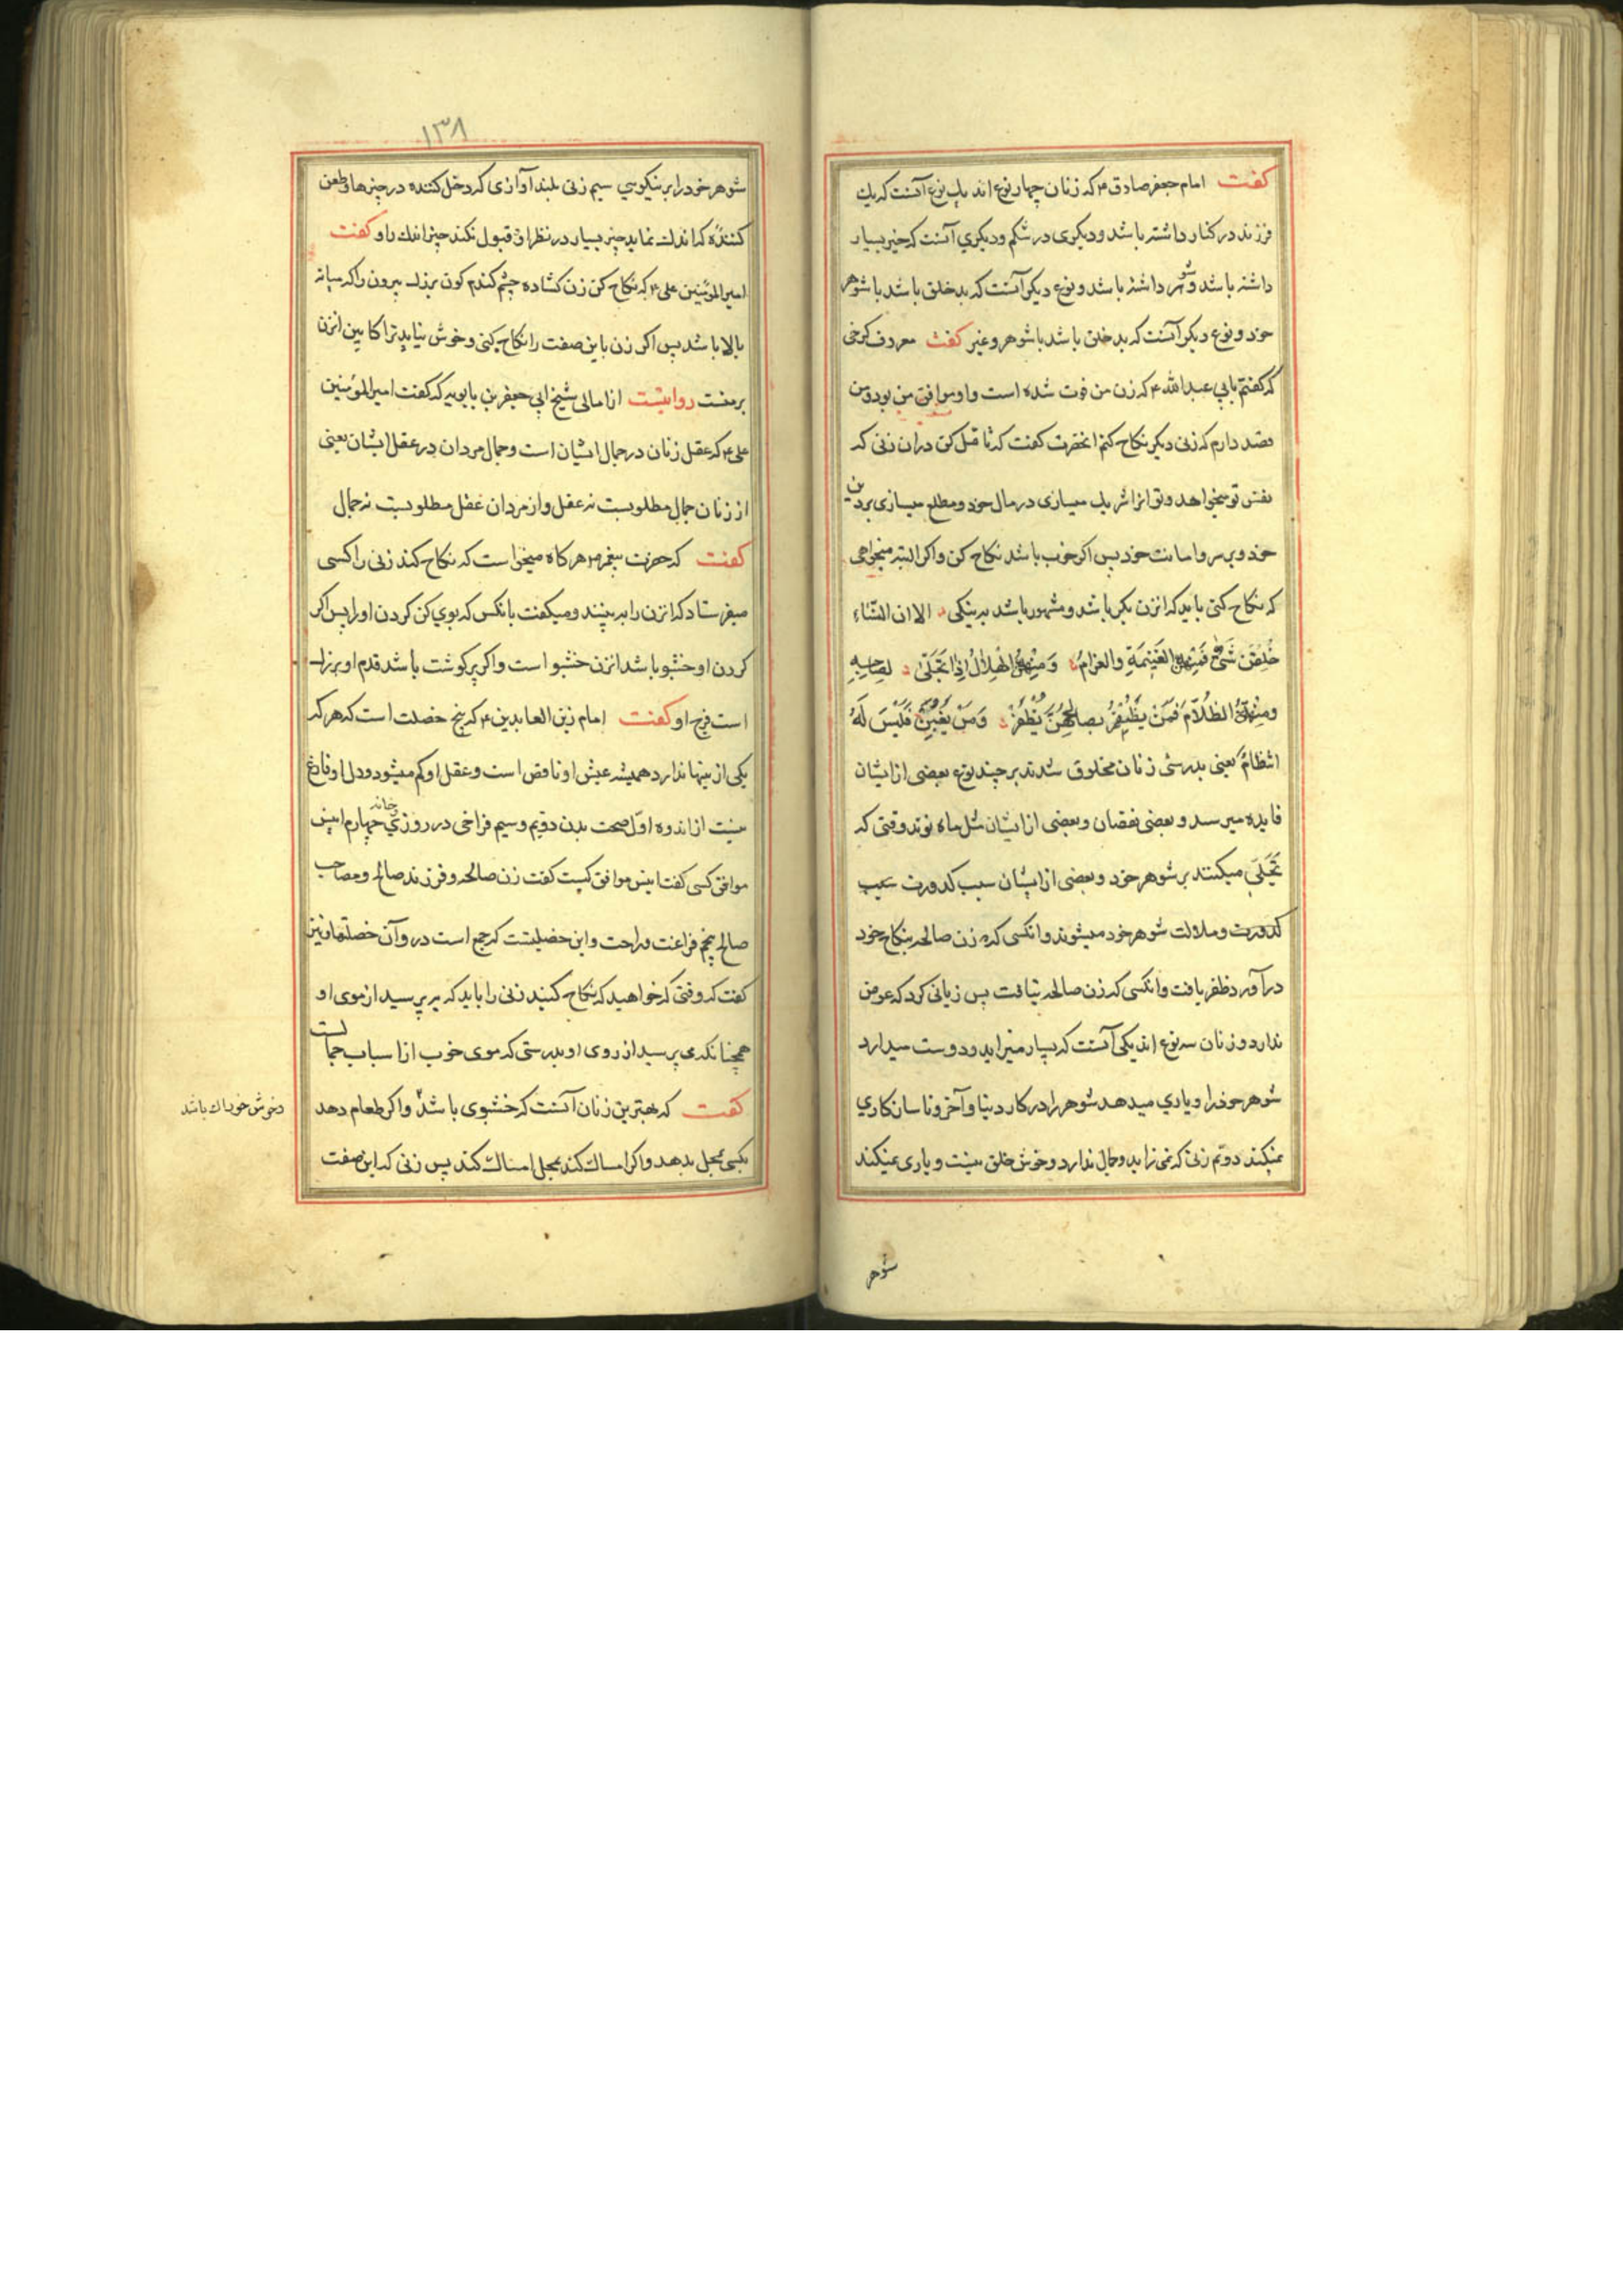 کفت امام جعفر صادق ۴ که زنان چهار نوع اند یك نوع آنست که یك
فرزند در کنار داشته باشد و دیکری در شکم و دیکری آنست که خیر بسیار
داشته باشد و شوهر داشته باشد و نوع دیکر آنست که بد خلق باشد با شوهر
خود و نوع دیکر آنست که بد خلق باشد با شوهر و غیر کفت معروف کرخی
که کفتم بابی عبدالله ۴ که زن من فوت شده است و او موافق من بود و من
قصد دارم که زنی دیکر نکاح کنم انحضرت کفت که تامل کن دران زنی که
نفس تو میخواهد و تو انرا شریك میسازی در مال خود و مطلع میسازی بردین
خود و بر سر و امانت خود پس اکر خوب باشد نکاح کن و اکر البته میخواهی
که نکاح کنی باید که انزن بکر باشد و مشهور باشد به نیکی الا ان النساء
خُلِقْنَ شَتّی فَمِنْهُنَّ الغَنِیمَةِ والغرامُ وَمِنْهُنَّ الْهِلالُ اِذا تَجَلّی لِصاحِبِهِ
ومِنْهُنَّ الظَّلامُ فَمَنْ یَظْفَرْ بصالحِهِنَّ یَظْفَرْ وَمَنْ یَغْبَنْ فَلَیْسَ لَهُ
انتظامُ یعنی بدرستی زنان مخلوق شدند بر چند نوع بعضی از ایشان
فایده میرسد و بعضی نقصان و بعضی از ایشان مثل ماه نوند وقتی که
تَجَلّی میکنند بر شوهر خود و بعضی از ایشان سبب کدورت سبب
کدورت و ملالت شوهر خود میشوند و انکسی که زن صالحه بنکاح خود
درآورد ظفر یافت و انکسی که زن صالحه نیافت پس زیانی کرد که عوض
ندارد و زنان سه نوع اند یکی آنست که بسیار میزاید و دوست میدارد
شوهر خود را و یاری میدهد شوهر را در کار دنیا و آخر و ناسازکاری
نمیکند دویم زنی که نمی زاید و جمال ندارد و خوش خلق نیست و یاری نمیکند
شوهر
۱۳۸
شوهر خود را بر نیکویی سیم زنی بلند آوازی که دخل کننده در چیزها و طعن
کننده که اندك نماید چیز بسیار در نظر او قبول نکند چیز اندك را و کفت
امیرالمؤمنین علی ۴ که نکاح کن زن کشاده چشم کندم کون بزرك بیرون را که میانه
بالا باشد پس اکر زن باین صفت را نکاح کنی و خوش نیاید ترا کابین انزن
بر منست روایتست از امالی شیخ ابی جعفر بن بابویه که کفت امیرالمؤمنین
علی ۴ که عقل زنان در جمال ایشان است و جمال مردان در عقل ایشان یعنی
از زنان جمال مطلوبست نه عقل و از مردان عقل مطلوبست نه جمال
کفت که حضرت پیغمبر هر کاه میخواست که نکاح کند زنی را کسی
میفرستاد که انزن را به بیند و میکفت بانکس که بوی کن کردن او را پس اکر
کردن او خشبو باشد انزن خشبو است و اکر پر کوشت باشد قدم او بزرك
است فرج او کفت امام زین العابدین ۴ که پنج خصلت است که هر که
یکی از ینها ندارد همیشه عیش او ناقص است و عقل او کم میشود و دل او فارغ
نیست از اندوه اول صحت بدن دویم و سیم فراخی در روزی و خانه چهارم انیس
موافق کسی کفت انیس موافق کیست کفت زن صالحه و فرزند صالح و مصاحب
صالح پنجم فراغت و راحت و این خصلیتست که جمع است درو آن خصلتها و نیز
کفت که وقتی که خواهید که نکاح کنید زنی را باید که بپرسید از موی او
همچنانکه می پرسید از روی او بدرستی که موی خوب از اسباب جمالست
کفت که بهترین زنان آنست که خشبوی باشد و اکر طعام دهد
بکسی بمحل بدهد و اکر امساك کند بمحل امساك کند پس زنی که این صفت
و خوش خوراك باشد